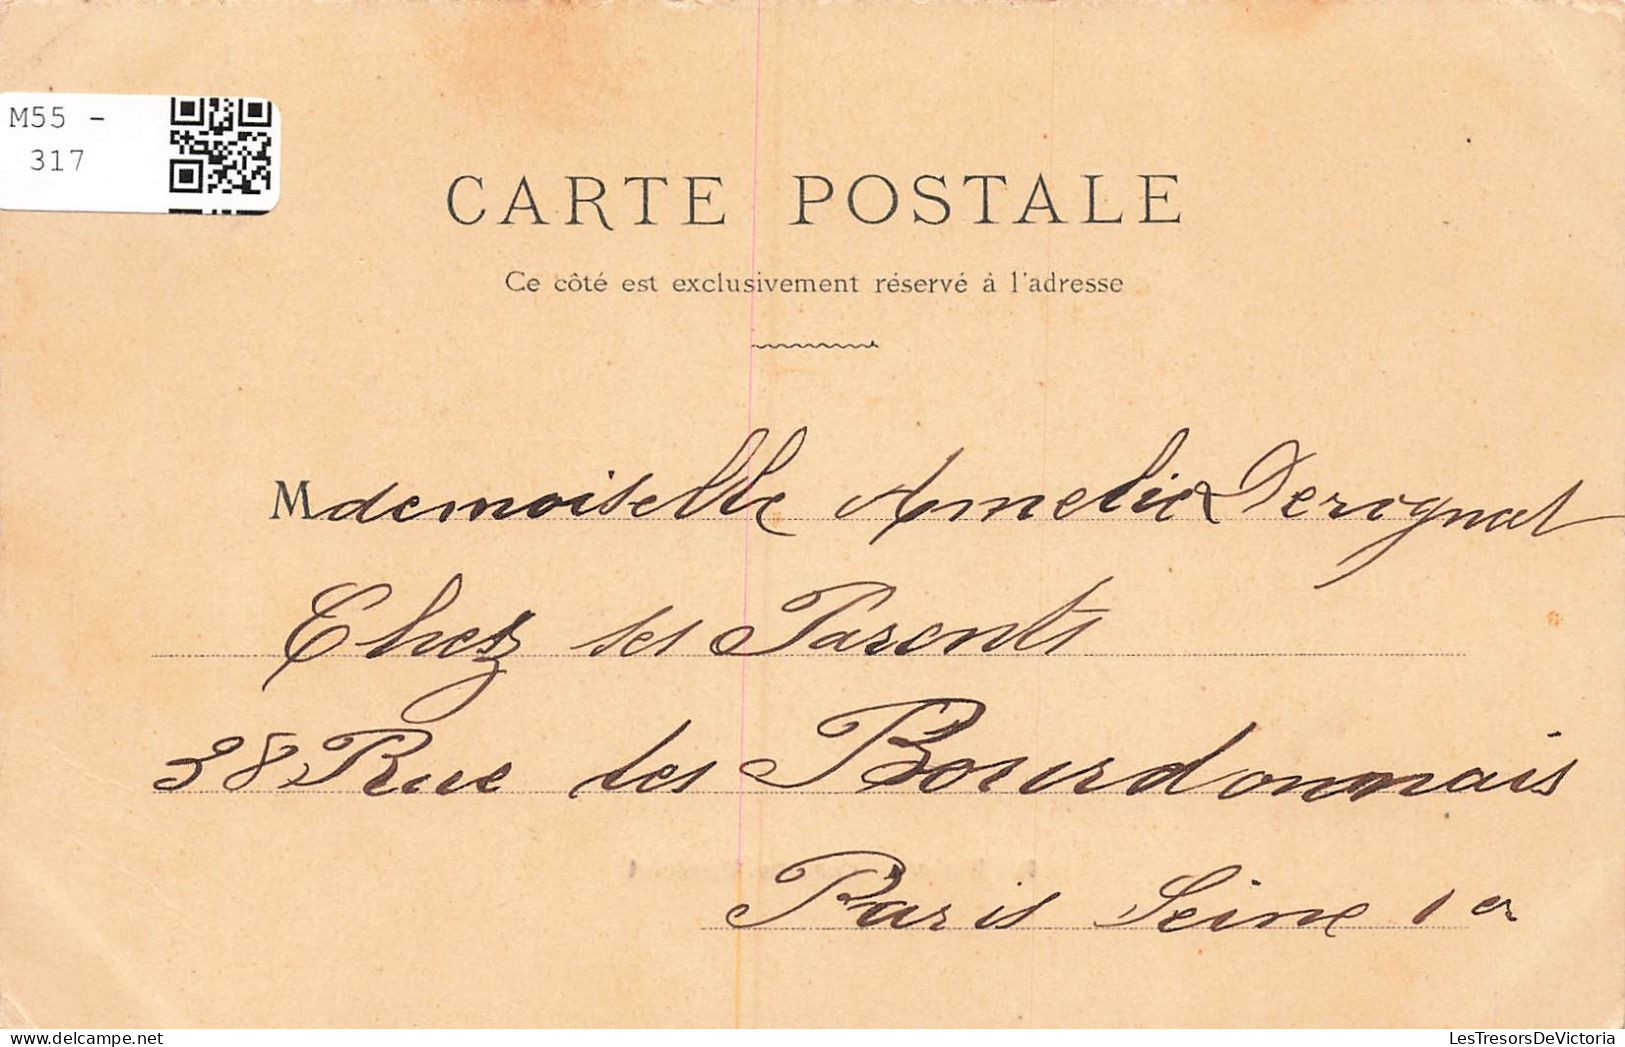 M55 -
317
CARTE POSTALE
Ce côté est exclusivement réservé à l'adresse
Mdemoiselle Amelie Derognat
Chez ses Parents
38 Rue des Bourdonnais
Paris Seine 1er
LesTresorsDeVictoria